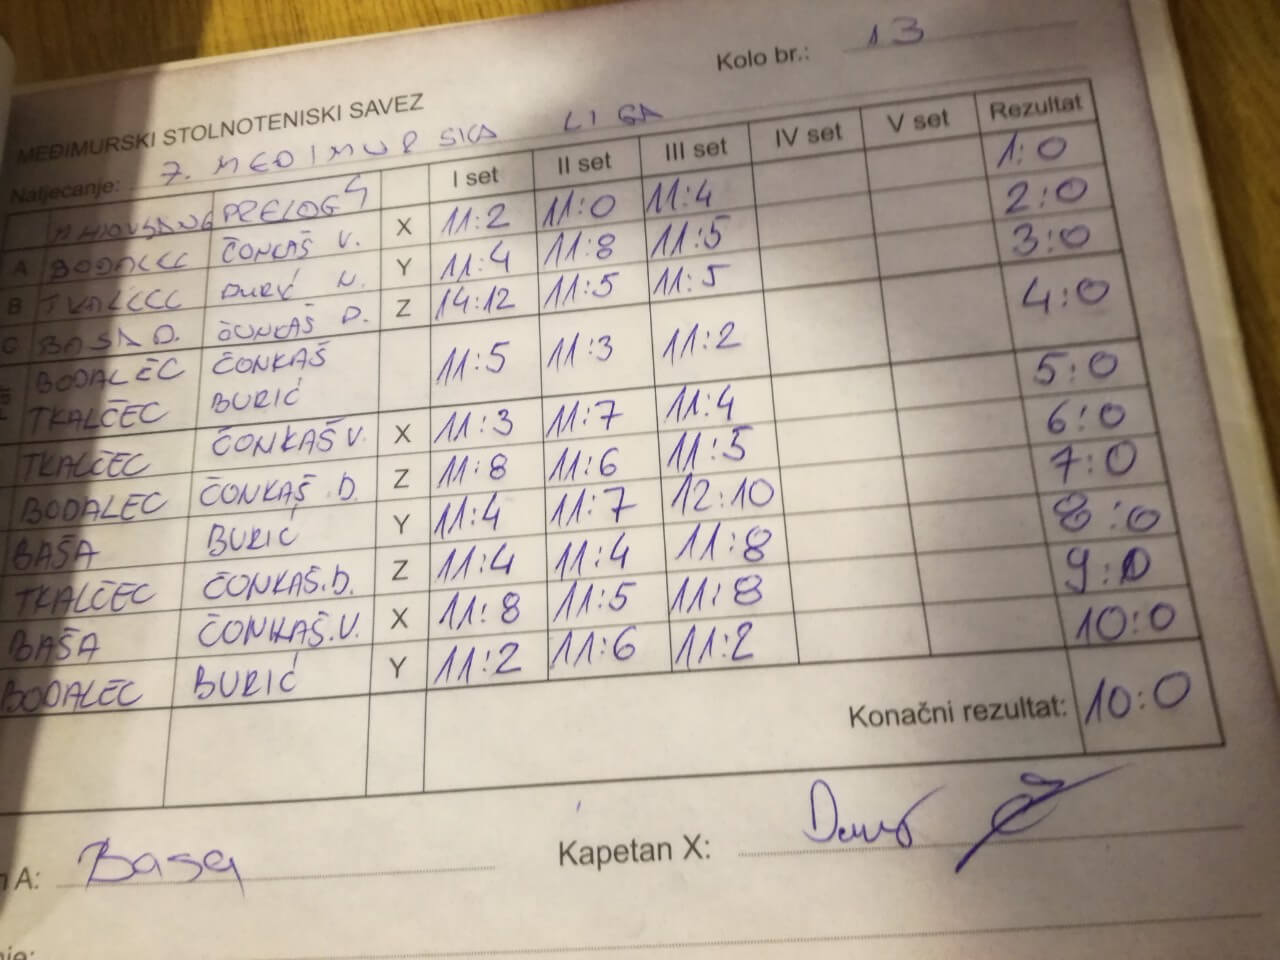 Kolo br.: 13
MEĐIMURSKI STOLNOTENISKI SAVEZ
Natjecanje: 7. MEDIMURSKA LIGA
PRELOG 4 I set II set III set IV set V set Rezultat
A BODALEC ČONKAŠ V. X 11:2 11:0 11:4 1:0
B TKALČEC BURIĆ N. Y 11:4 11:8 11:5 2:0
C BAŠA D. ČONKAŠ D. Z 14:12 11:5 11:5 3:0
BODALEC ČONKAŠ 11:5 11:3 11:2 4:0
TKALČEC BURIĆ
TKALČEC ČONKAŠ V. X 11:3 11:7 11:4 5:0
BODALEC ČONKAŠ D. Z 11:8 11:6 11:5 6:0
BAŠA BURIĆ Y 11:4 11:7 12:10 7:0
TKALČEC ČONKAŠ.D. Z 11:4 11:4 11:8 8:0
BAŠA ČONKAŠ.V. X 11:8 11:5 11:8 9:0
BODALEC BURIĆ Y 11:2 11:6 11:2 10:0
Konačni rezultat: 10:0
A: Basa Kapetan X: